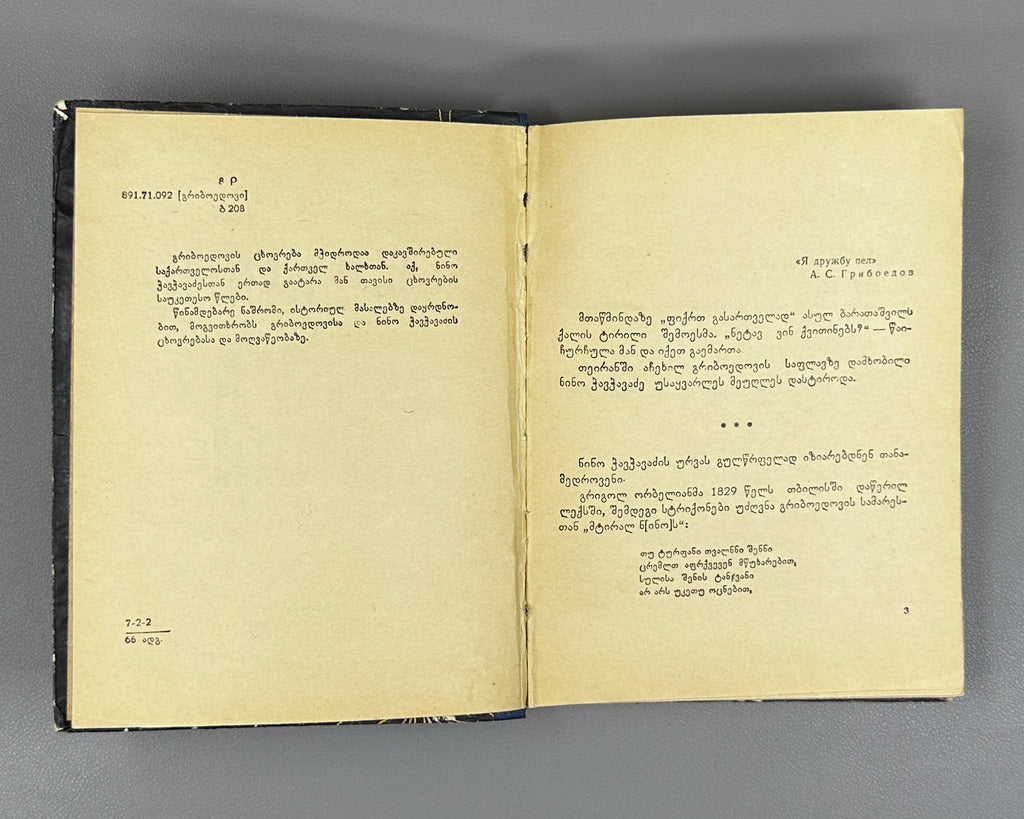 8 Р
891.71.092 [გრიბოედოვი]
ბ 208
გრიბოედოვის ცხოვრება მჭიდროდაა დაკავშირებული
საქართველოსთან და ქართველ ხალხთან. აქ, ნინო
ჭავჭავაძესთან ერთად გაატარა მან თავისი ცხოვრების
საუკეთესო წლები.
წინამდებარე ნაშრომი, ისტორიულ მასალებზე დაყრდნო-
ბით, მოგვითხრობს გრიბოედოვისა და ნინო ჭავჭავაძის
ცხოვრებასა და მოღვაწეობაზე.
7-2-2
66 ადგ.
«Я дружбу пел»
А. С. Грибоедов
მთაწმინდაზე „ფიქრთ გასართველად“ ასულ ბარათაშვილს
ქალის ტირილი შემოესმა. „ნეტავ ვინ ქვითინებს?“ — წაი-
ჩურჩულა მან და იქეთ გაემართა.
თეირანში აჩეხილ გრიბოედოვის საფლავზე დამხობილი
ნინო ჭავჭავაძე უსაყვარლეს მეუღლეს დასტიროდა.
• • •
ნინო ჭავჭავაძის ურვას გულწრფელად იზიარებდნენ თანა-
მედროვენი.
გრიგოლ ორბელიანმა 1829 წელს თბილისში დაწერილ
ლექსში, შემდეგი სტრიქონები უძღვნა გრიბოედოვის სამარეს-
თან „მტირალ ნ[ინო]ს“:
თუ ტურფანი თვალნნი შენნი
ცრემლთ აფრქვევენ მწუხარებით,
სულისა შენის ტანჯვანი
არ არს უკეთუ ოცნებით,
3